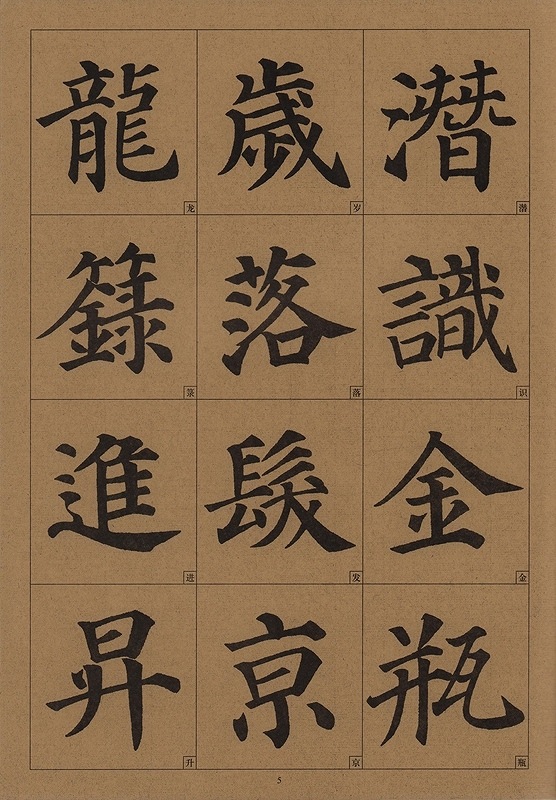 潛識金瓶
潜识金瓶
歲落髮京
岁落发京
龍籙進昇
龙箓进升
5